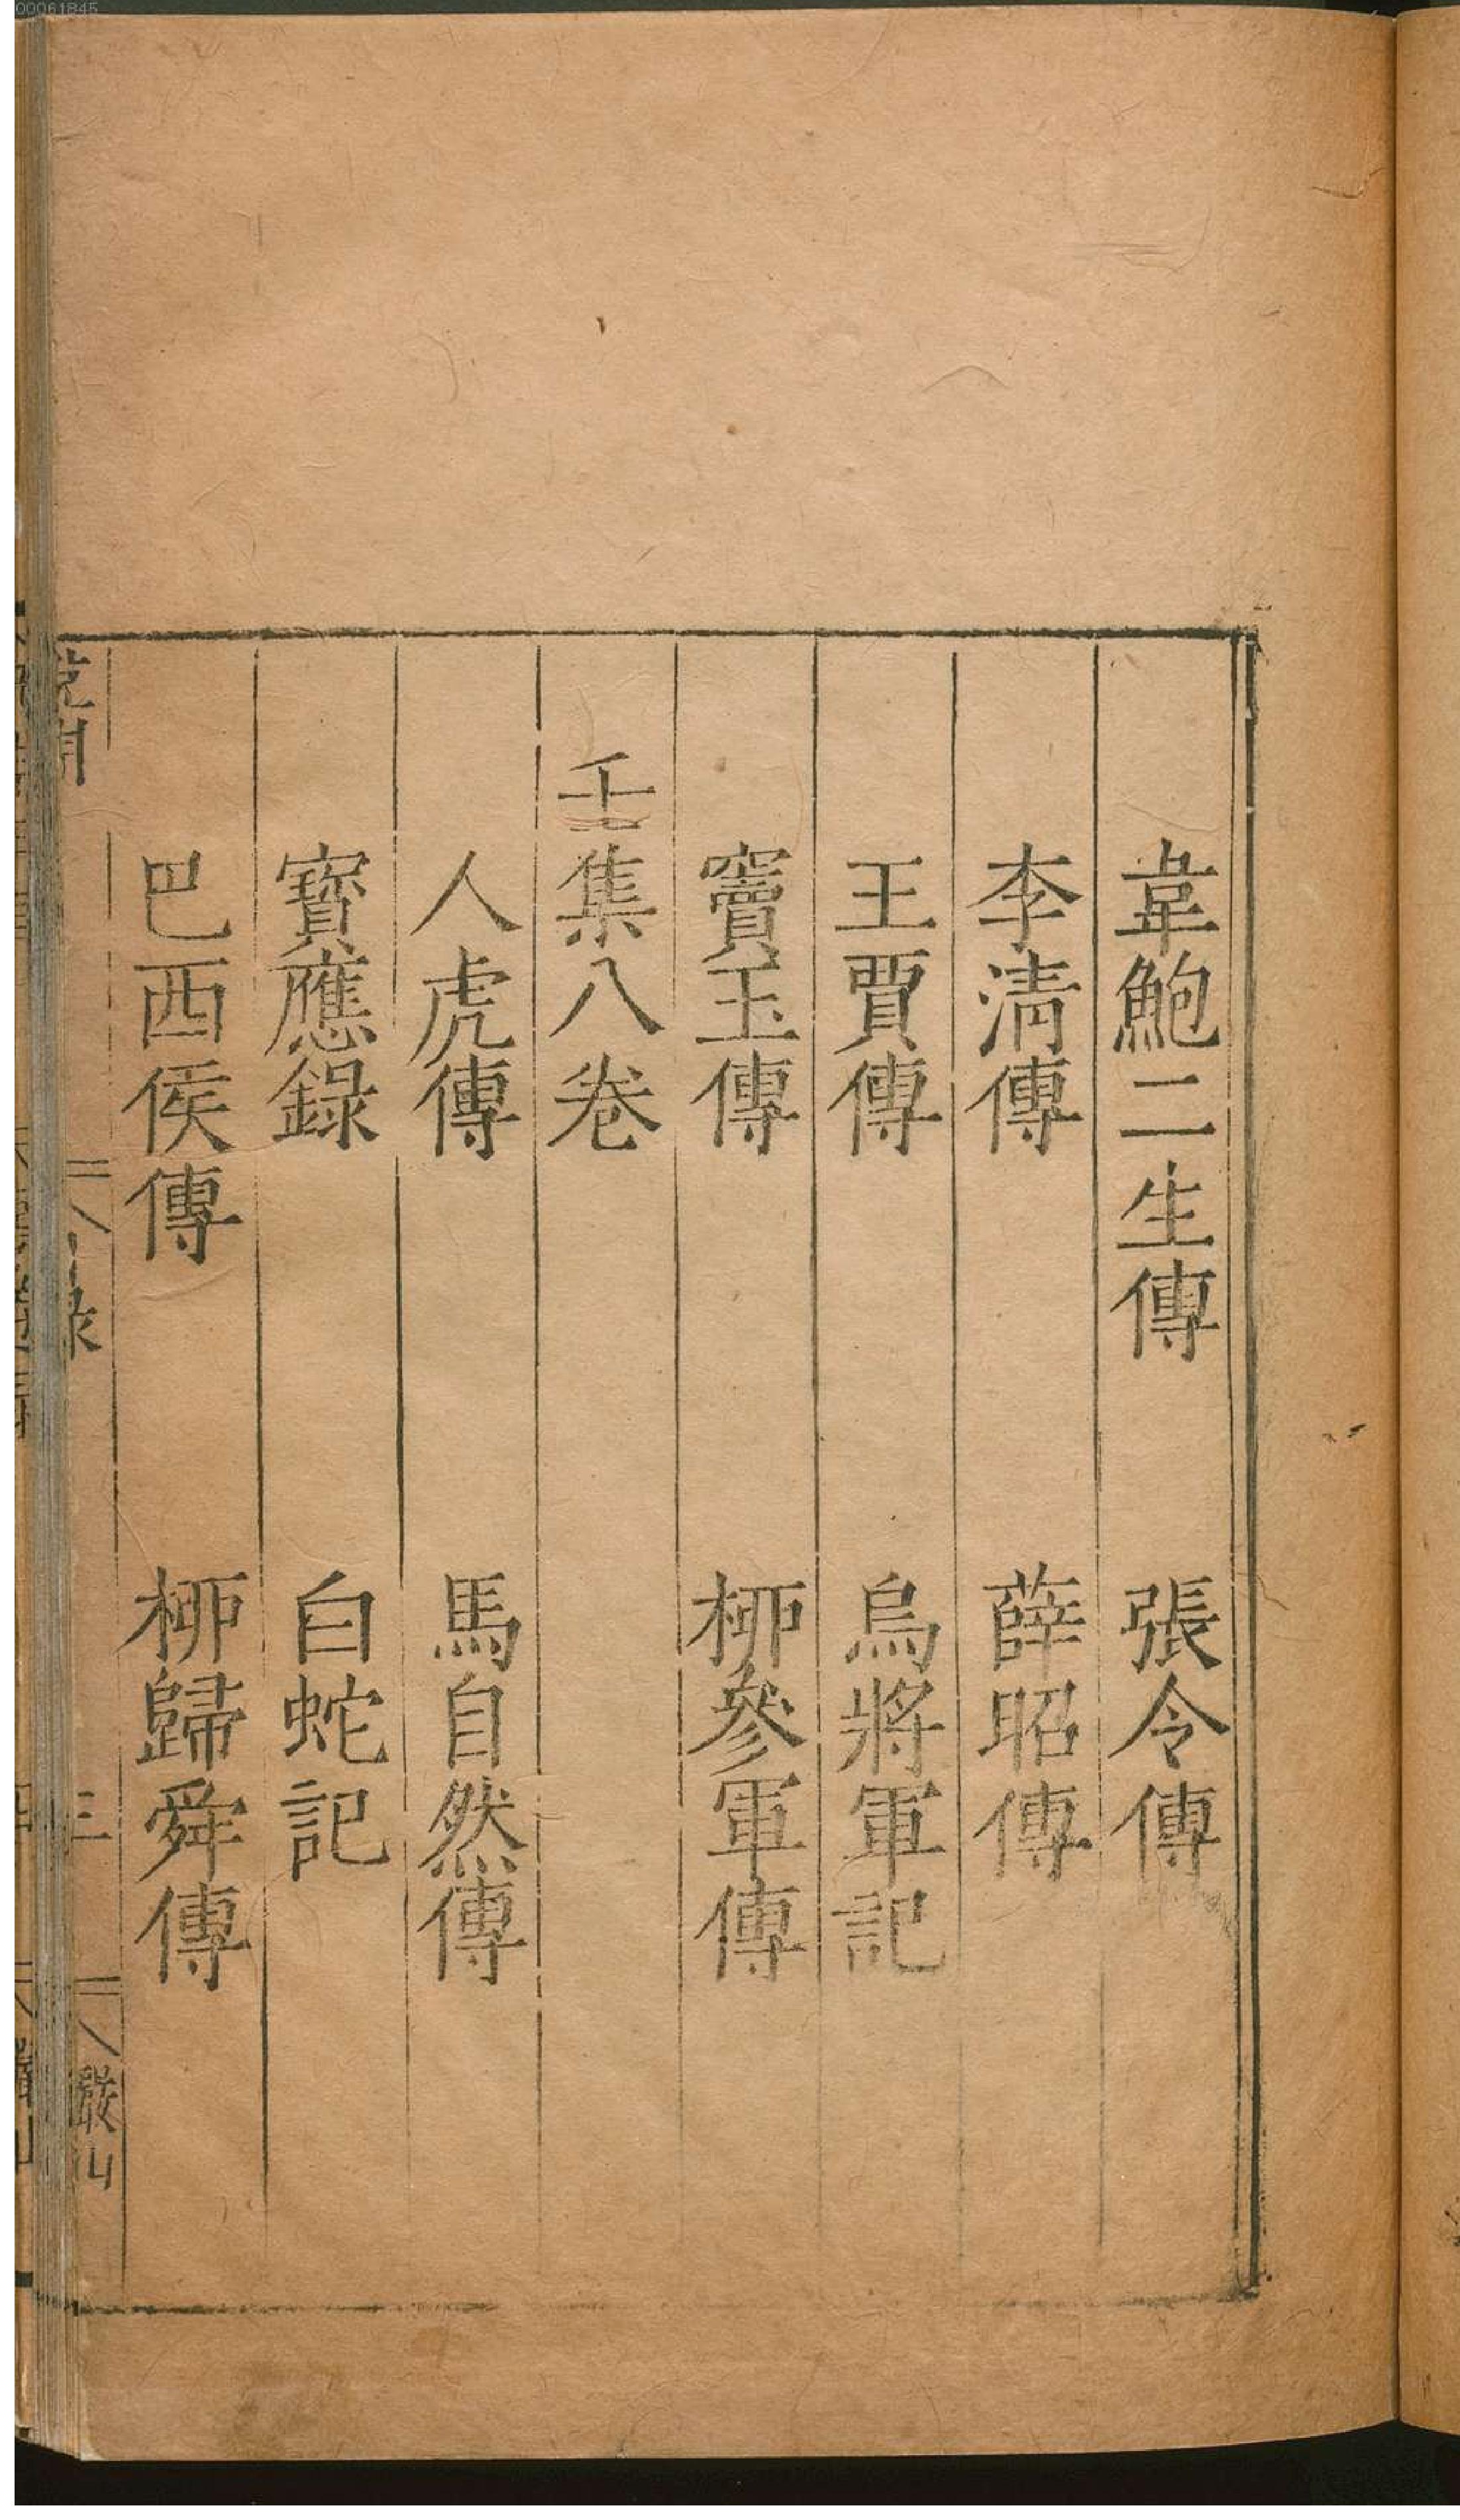 韋鮑二生傳　張令傳
李清傳　薛昭傳
王賈傳　烏將軍記
竇玉傳　栁參軍傳
壬集八卷
人虎傳　馬自然傳
寳應錄　白蛇記
巴西侯傳　栁歸舜傳
三
00061845